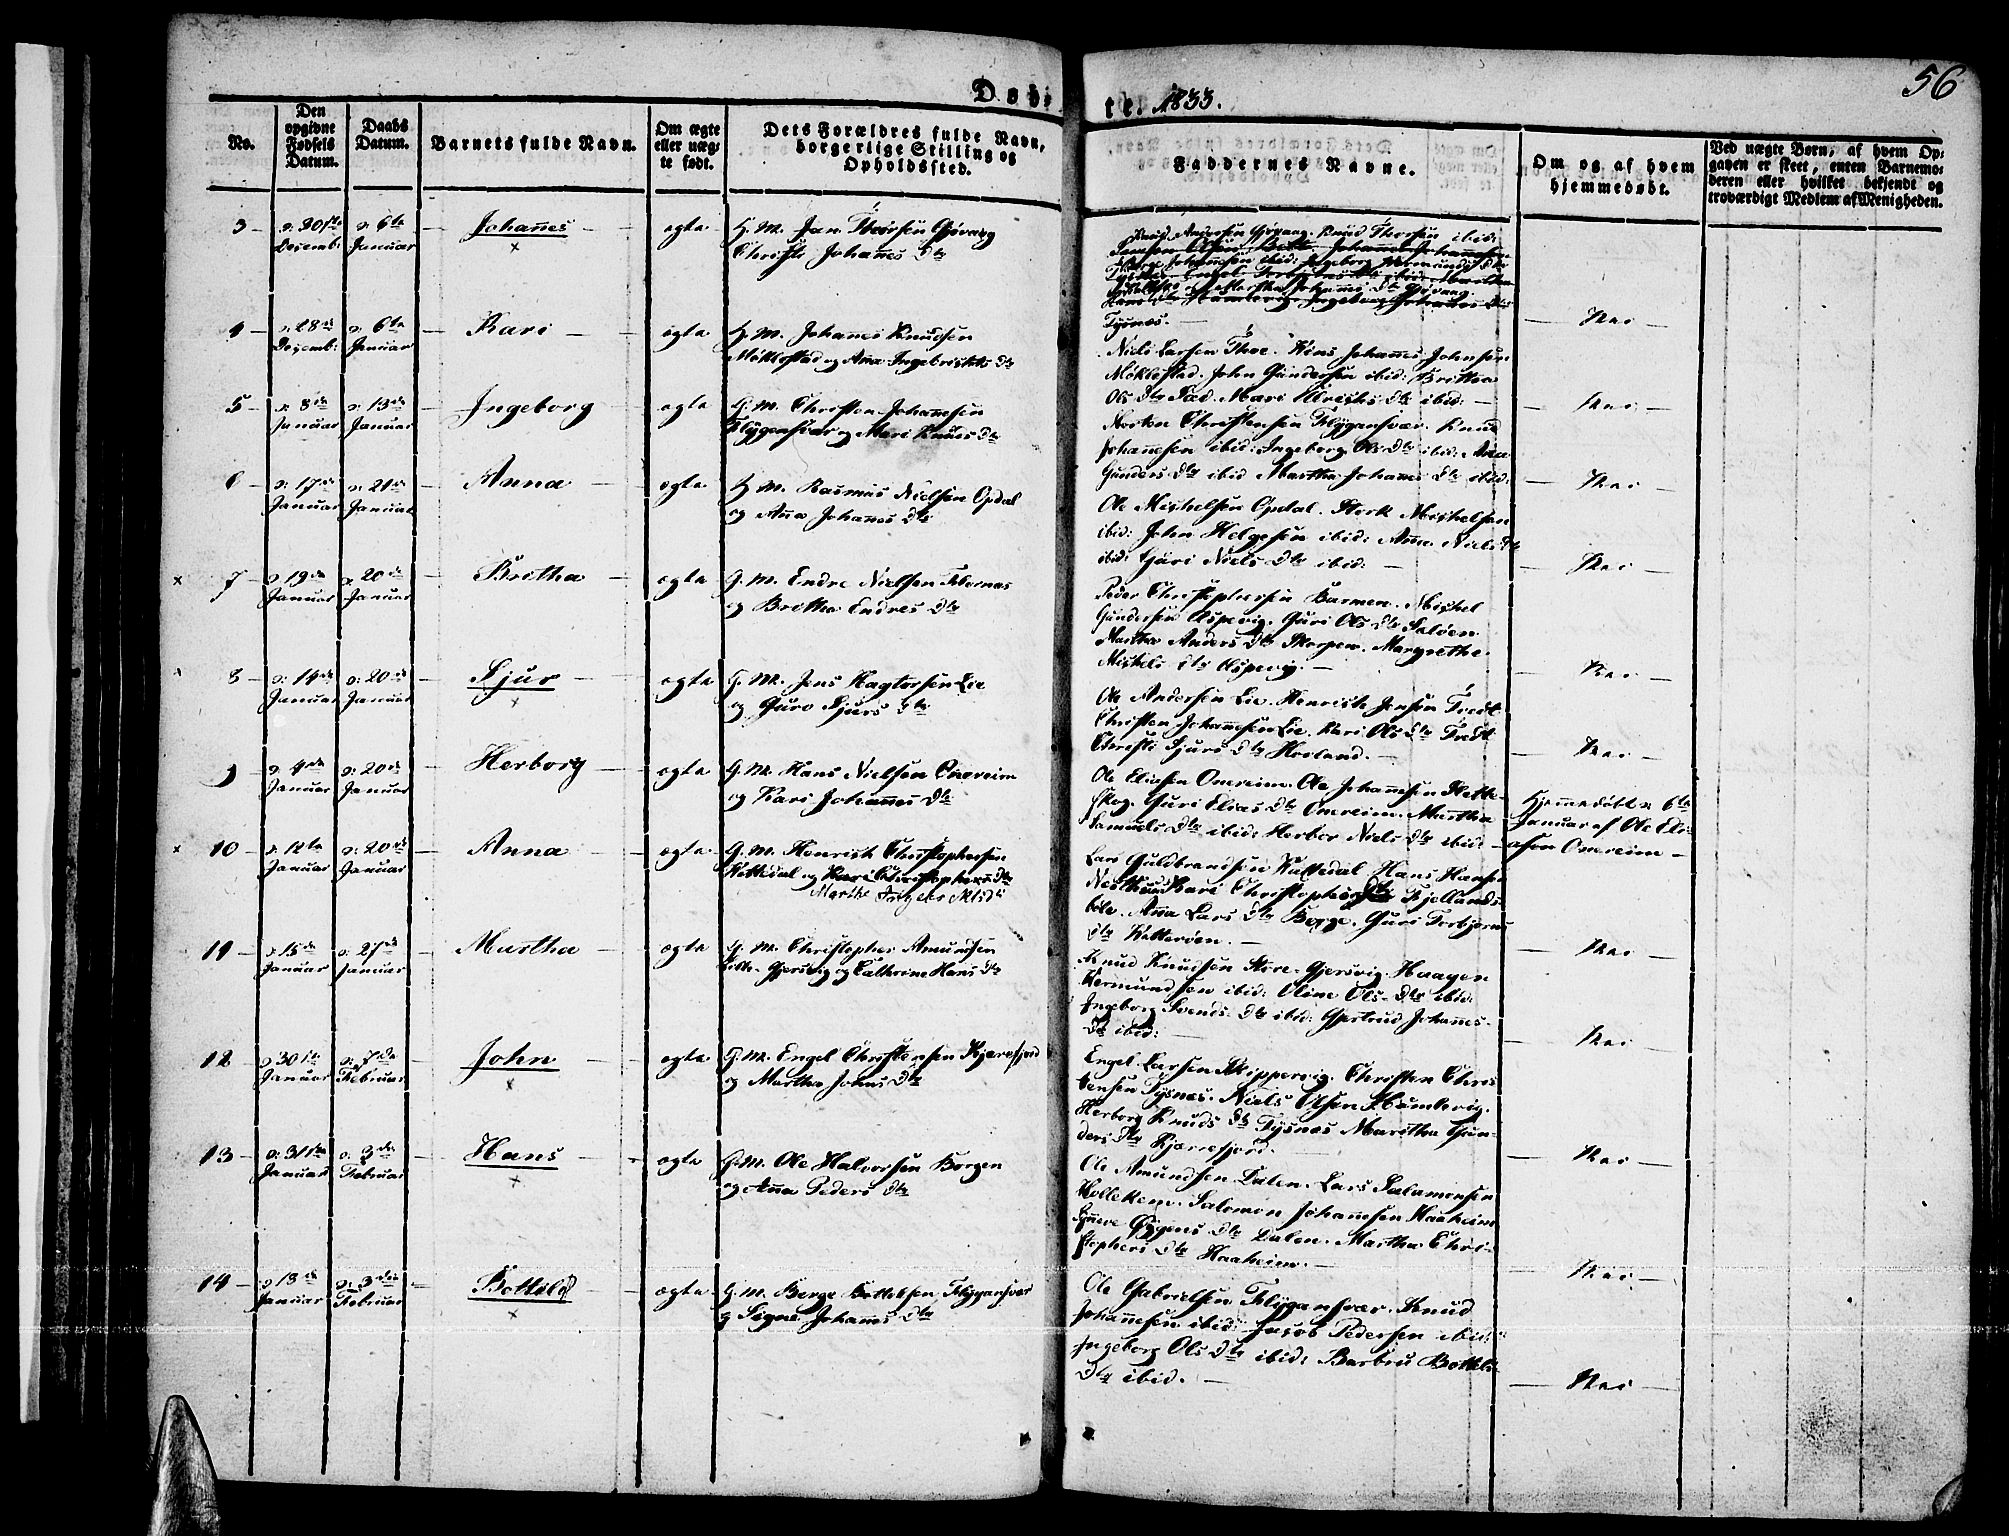 56
Døbte. 1833.
No.
Den opgivne Fødsels Datum.
Daabs Datum.
Barnets fulde Navn.
Om ægte eller uægte født.
Dets Forældres fulde Navn, borgerlige Stilling og Opholdssted.
Faddernes Navne.
Om og af hvem hjemmedøbt.
Ved uægte Børn, af hvem Opgaven er skeet, enten Barnemoderen eller hvilket bekjendt og troværdigt Medlem af Menigheden.
3
Desemb:
d: 6te Januar
Johannes
ægte
G. M. Jan Thorsen Gjøvaag
Christi Johannes Dtr
Knud Thorsen ibid:
Tysnæs.
Nei
4
d: 28de Desemb:
d: 6te Januar
Kari
ægte
G. M. Johannes Knudsen
Møklestad og Anna Ingebrichts Dtr
Niels Larsen Thoe. Johannes Johnsen
Møklestad. John Gundersen ibid: Britha
Ols Dtr Sæd. Mari Ulrichs Dtr ibid:
Nei
5
d: 8de Januar
d: 13de Januar
Ingeborg
ægte
G. M. Christen Johannesen
Flygansvær og Mari Knuds Dtr
Morten Christensen Flygansvær. Knud
Johannesen ibid: Ingeborg Ols Dtr ibid: Anna
Gunders Dtr ibid Martha Johannes Dtr ibid:
Nei
6
d: 17de Januar
d: 20de Januar
Anna
ægte
G. M. Rasmus Nielsen Opdal
og Anna Johannes Dtr
Ole Michelsen Opdal. Michelsen
ibid: John Helgesen ibid: Anna Niels Dtr
ibid: Gjøri Niels Dtr ibid:
Nei
7
d: 19de Januar
d: 20de Januar
Britha
ægte
G. M. Endre Nielsen
og Britha Endres Dtr
Peder Christophersen Barmen. Michel
Gundersen Uspevig. Guri Ols Dtr Seløen
Martha Anders Dtr Skorpen. Margrethe
Michels Dtr Uspevig.
Nei
8
d: 14de Januar
d: 20de Januar
Sjur
ægte
G. M. Jens Hagtorsen Lie
og Guro Sjurs Dtr
Ole Andersen Lie. Henrich Jensen Tvedt.
Christen Johannesen Lie. Kari Ols Dtr Tvedt
Christi Sjurs Dtr Hovland.
Nei
9
d: 4de Januar
d: 20de Januar
Herborg
ægte
G. M. Hans Nielsen Onereim
og Kari Johannes Dtr
Ole Eliasen Onereim. Ole Johannesen Flatte
skog. Guri Elias Dtr Onereim. Martha
Samuels Dtr ibid: Herbor Niels Dtr ibid:
Hjemmedøbt d: 6te
Januar af Ole Eli-
asen Onereim
10
d: 12te Januar
d: 20de Januar
Anna
ægte
G. M. Henrich Christophersen
og Kari Christophers Dtr
Marthe
Lars Guldbrandsen Hans Hansen
Kari Christophers Dtr Kjellands-
bøle. Anna Lars Dtr Borge. Guri Torbjørns
Dtr
Nei
11
d: 15de Januar
d: 27de Januar
Martha
ægte
G. M. Christopher Amundsen
Gjersvig og Cathrina Hans Dtr
Knud Knudsen Store-Gjersvig. Haagen
Vermundsen ibid: Oline Ols Dtr ibid:
Ingeborg Svends Dtr ibid: Gjertrud Johannes-
Dtr ibid:
Nei
12
d: 30te Januar
Februar
John
ægte
G. M. Engel Christensen Kjærefjord
og Martha Johns Dtr
Engel Larsen Skippervig. Christen Chris
tensen Tysnæs. Niels Olsen Humlevig.
Herborg Knuds Dtr Tysnæs Maritha Gun-
ders Dtr Kjærrefjord.
Nei
13
d: 31te Januar
d: 3de Februar
Hans
ægte
G. M. Ole Halvorsen Borgen
og Anna Peders Dtr
Ole Amundsen Dalen. Lars Salamonsen
Salomon Johannesen Haaheim
Dtr Dalen. Martha Chri-
stophers Dtr Haaheim.
Nei
14
d: 13de Januar
d: 3de Februar
Bottolf
ægte
G. M. Børge Bottelsen Flygansvær
og Signe Johannes Dtr
Ole Gabrielsen Flygansvær. Knud
Johannesen ibid: Jacob Pedersen ibid:
Ingeborg Ols Dtr ibid: Barbru Bottels
Dtr ibid.
Nei